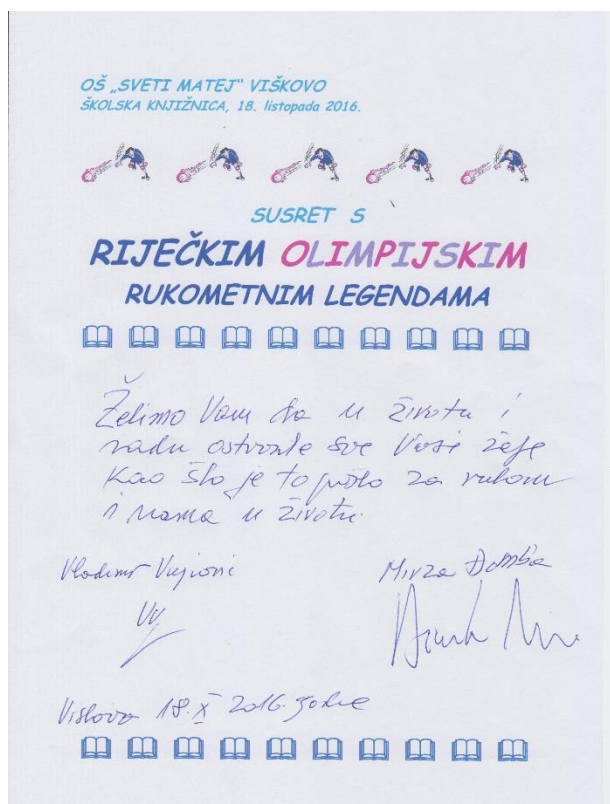 OŠ „SVETI MATEJ" VIŠKOVO
ŠKOLSKA KNJIŽNICA, 18. listopada 2016.
SUSRET S
RIJEČKIM OLIMPIJSKIM
RUKOMETNIM LEGENDAMA
Želimo Vam da u životu i
radu ostvarite sve Vaše želje
kao što je to pošlo za rukom
i nama u životu.
Vladimir Vujović Mirza Džomba
VV
Viškovo 18. X 2016. godine